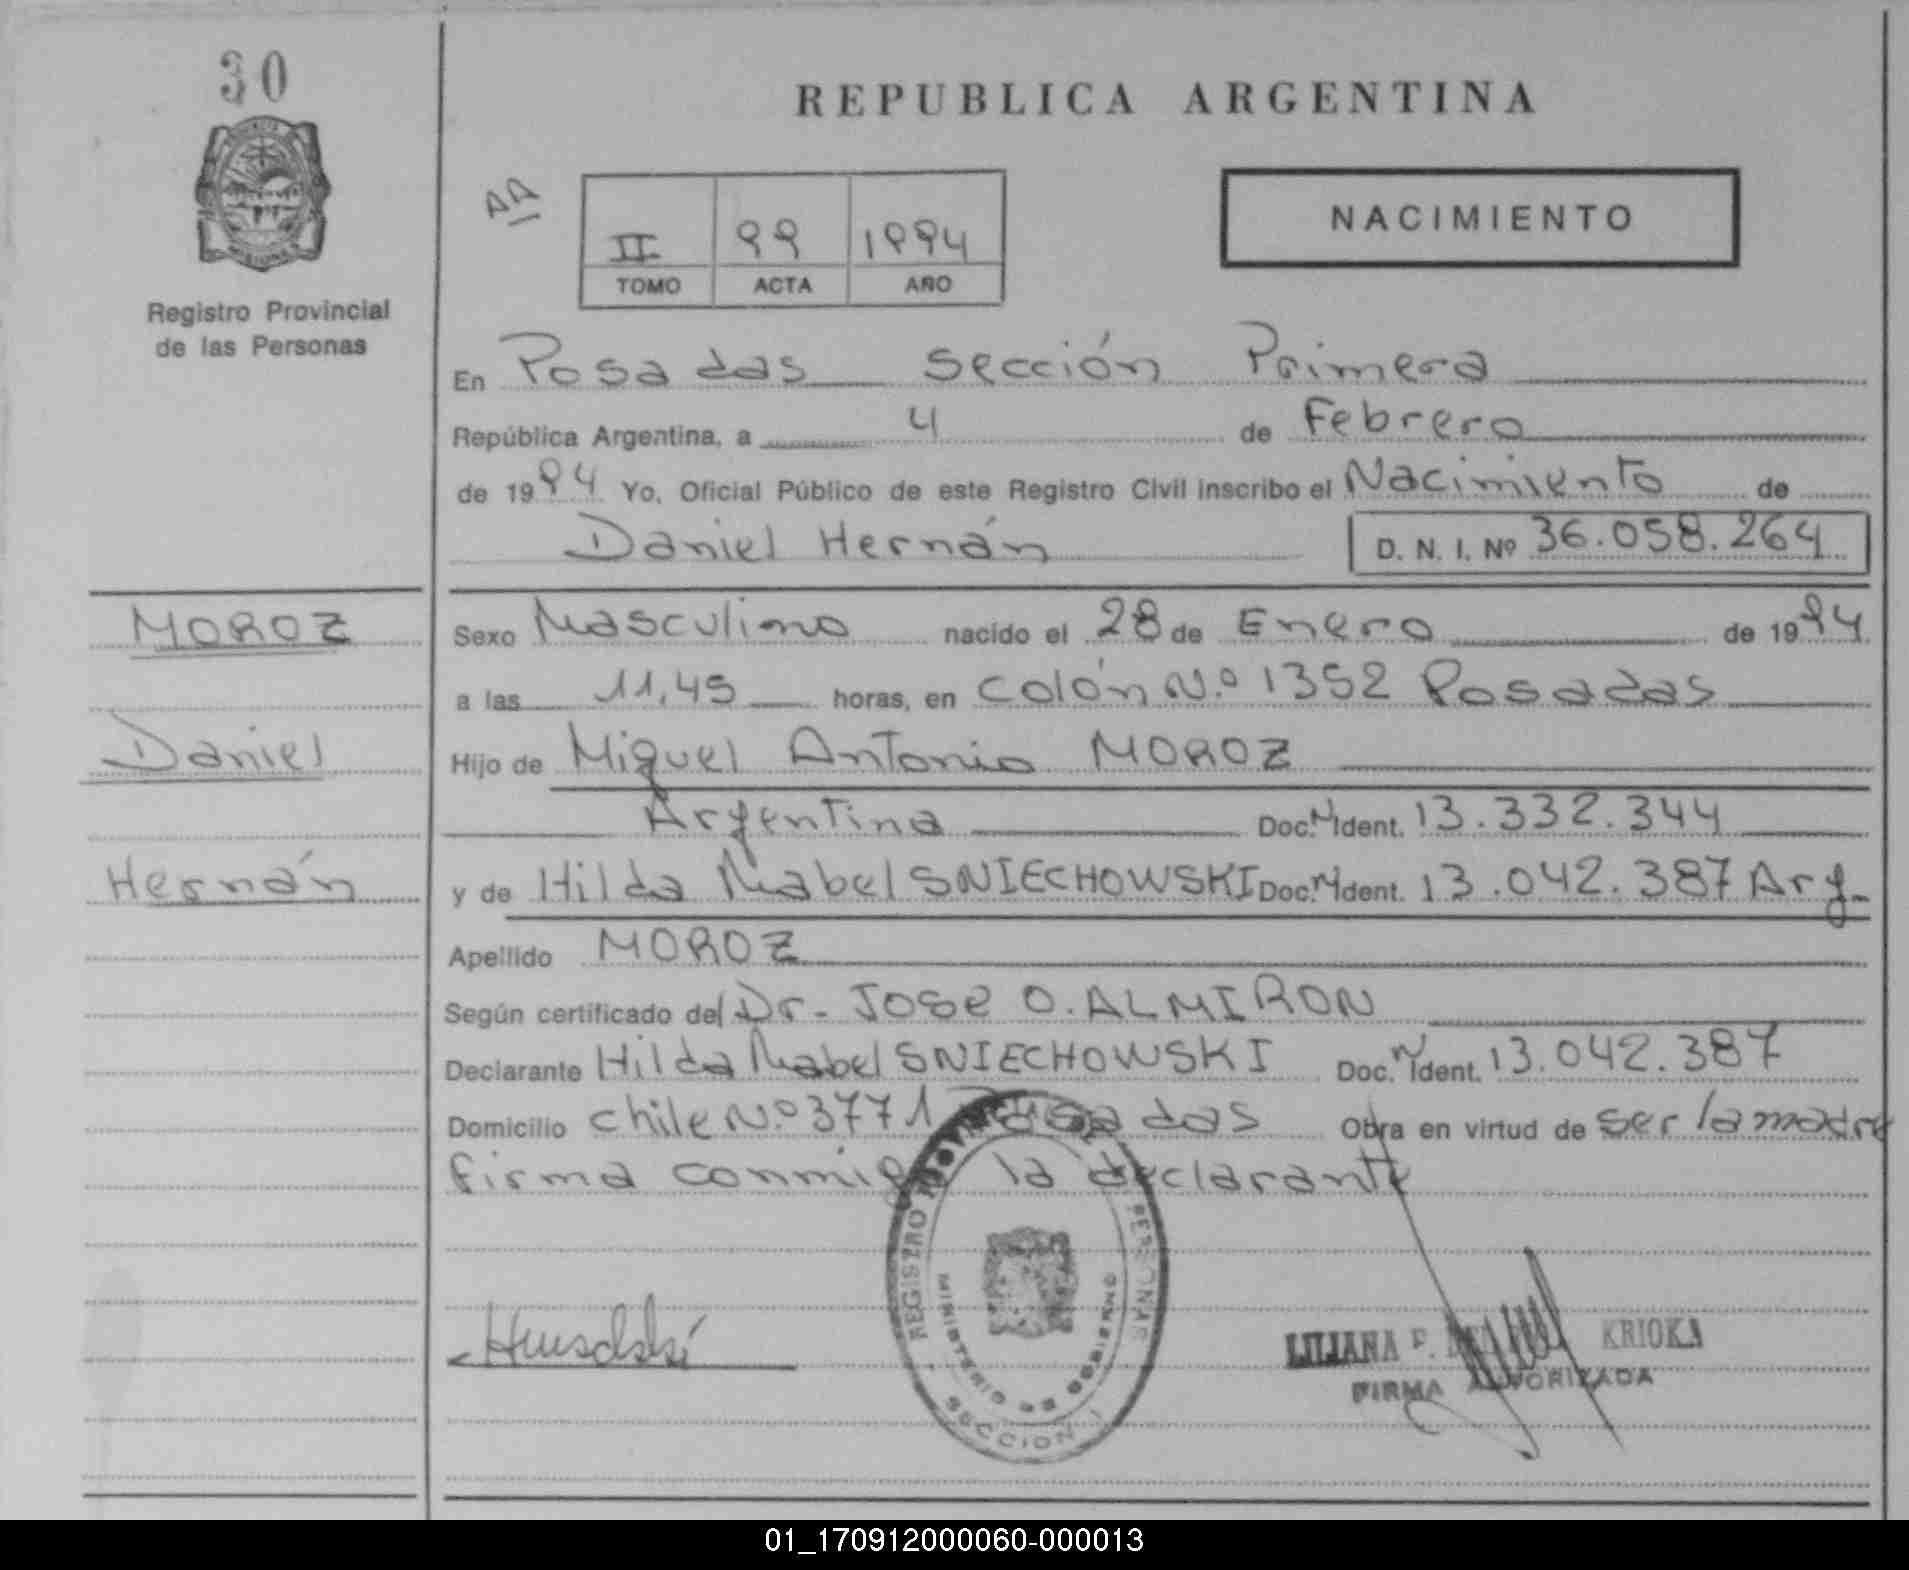 30
REPUBLICA ARGENTINA
AA
II 99 1994
TOMO ACTA AÑO
NACIMIENTO
Registro Provincial
de las Personas
En Posadas sección Primera
República Argentina, a 4 de Febrero
de 1994 Yo, Oficial Público de este Registro Civil inscribo el Nacimiento de
Daniel Hernán D. N. I. Nº 36.058.264
MOROZ
Daniel
Hernán
Sexo Masculino nacido el 28 de Enero de 1994
a las 11,45 horas, en colón N.º 1352 Posadas
Hijo de Miguel Antonio MOROZ
Argentina Doc. N Ident. 13.332.344
y de Hilda Mabel SNIECHOWSKI Doc. N Ident. 13.042.387 Arg.
Apellido MOROZ
Según certificado del Dr. José O. ALMIRON
Declarante Hilda Mabel SNIECHOWSKI Doc. N Ident. 13.042.387
Domicilio chile N.º 3771 Posadas Obra en virtud de ser la madre
firma conmigo la declarante
REGISTRO PERSONAS
MINISTERIO DE GOBIERNO
SECCION I
LILIANA F. KRIOKA
FIRMA AUTORIZADA
01_170912000060-000013